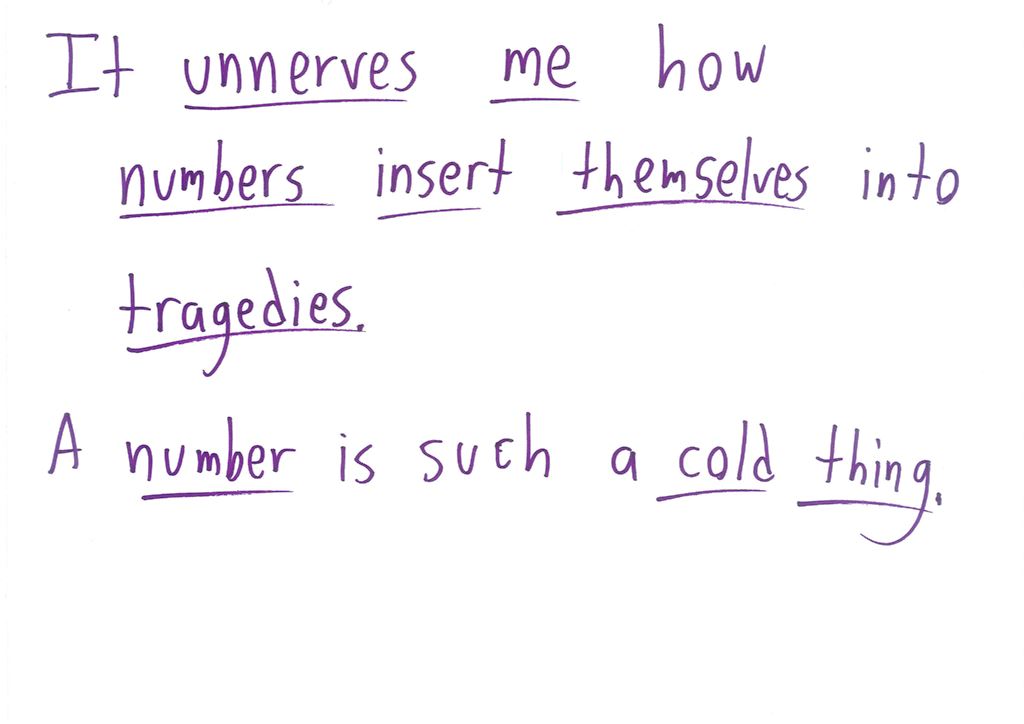 It unnerves me how
numbers insert themselves into
tragedies.
A number is such a cold thing.